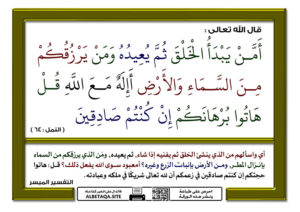 قال الله تعالى :
أَمَّنْ يَبْدَأُ الْخَلْقَ ثُمَّ يُعِيدُهُ وَمَنْ يَرْزُقُكُمْ
مِنَ السَّمَاءِ وَالْأَرْضِ أَإِلَهٌ مَعَ اللَّهِ قُلْ
هَاتُوا بُرْهَانَكُمْ إِنْ كُنْتُمْ صَادِقِينَ
( النمل : ٦٤ )
أي واسألهم من الذي ينشئ الخلق ثم يفنيه إذا شاء، ثم يعيده، ومن الذي يرزقكم من السماء
بإنزال المطر، ومن الأرض بإنبات الزرع وغيره؟ أمعبود سوى الله يفعل ذلك؟ قل: هاتوا
حجتكم إن كنتم صادقين في زعمكم أن لله تعالى شريكًا في ملكه وعبادته.
التفسير الميسر
ALBETAQA.SITE